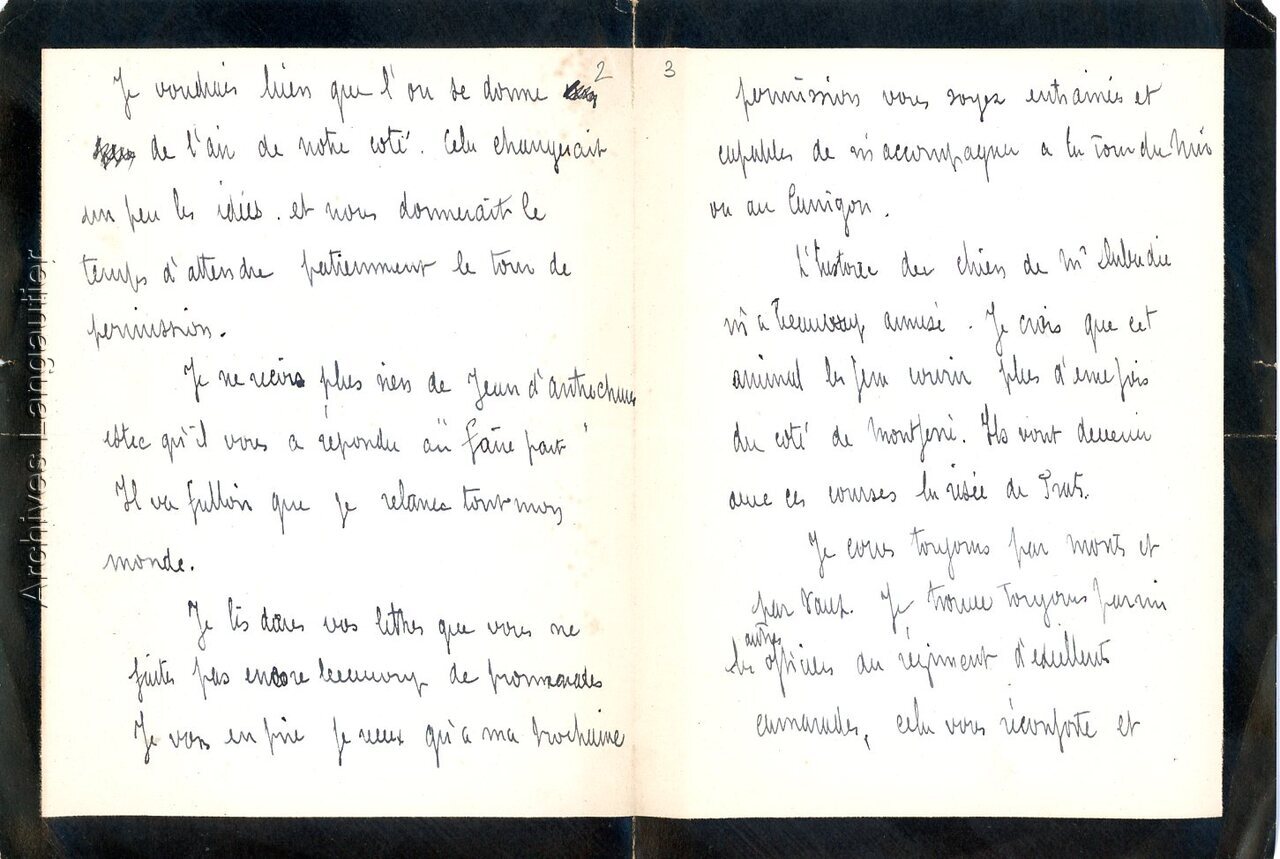 2
Je voudrais bien que l'on se donne
de l'air de notre coté. Cela changerait
un peu les idées. et nous donnerait le
temps d'attendre patiemment le tour de
permission.
Je ne recois plus rien de Jean d'
estce qu'il vous a répondu au "faire part"
Il va falloir que je relance tout mon
monde.
Je lis dans vos lettres que vous ne
faites pas encore beaucoup de promenades
Je vous en prie je veux qu'à ma prochaine
3
permission vous soyez entrainés et
capables de m'accompagner a la tour du Mir
ou au Canigou.
L'histoire des chiens de Mr
m'a beaucoup amusé. Je crois que cet
animal les fera courir plus d'une fois
du coté de Montferré. Ils vont devenir
avec ces courses la risée de Prats.
Je cours toujours par monts et
par vaux. Je trouve toujours parmi
les autres officiers du régiment d'excellents
camarades, cela vous réconforte et
Archives Langautier